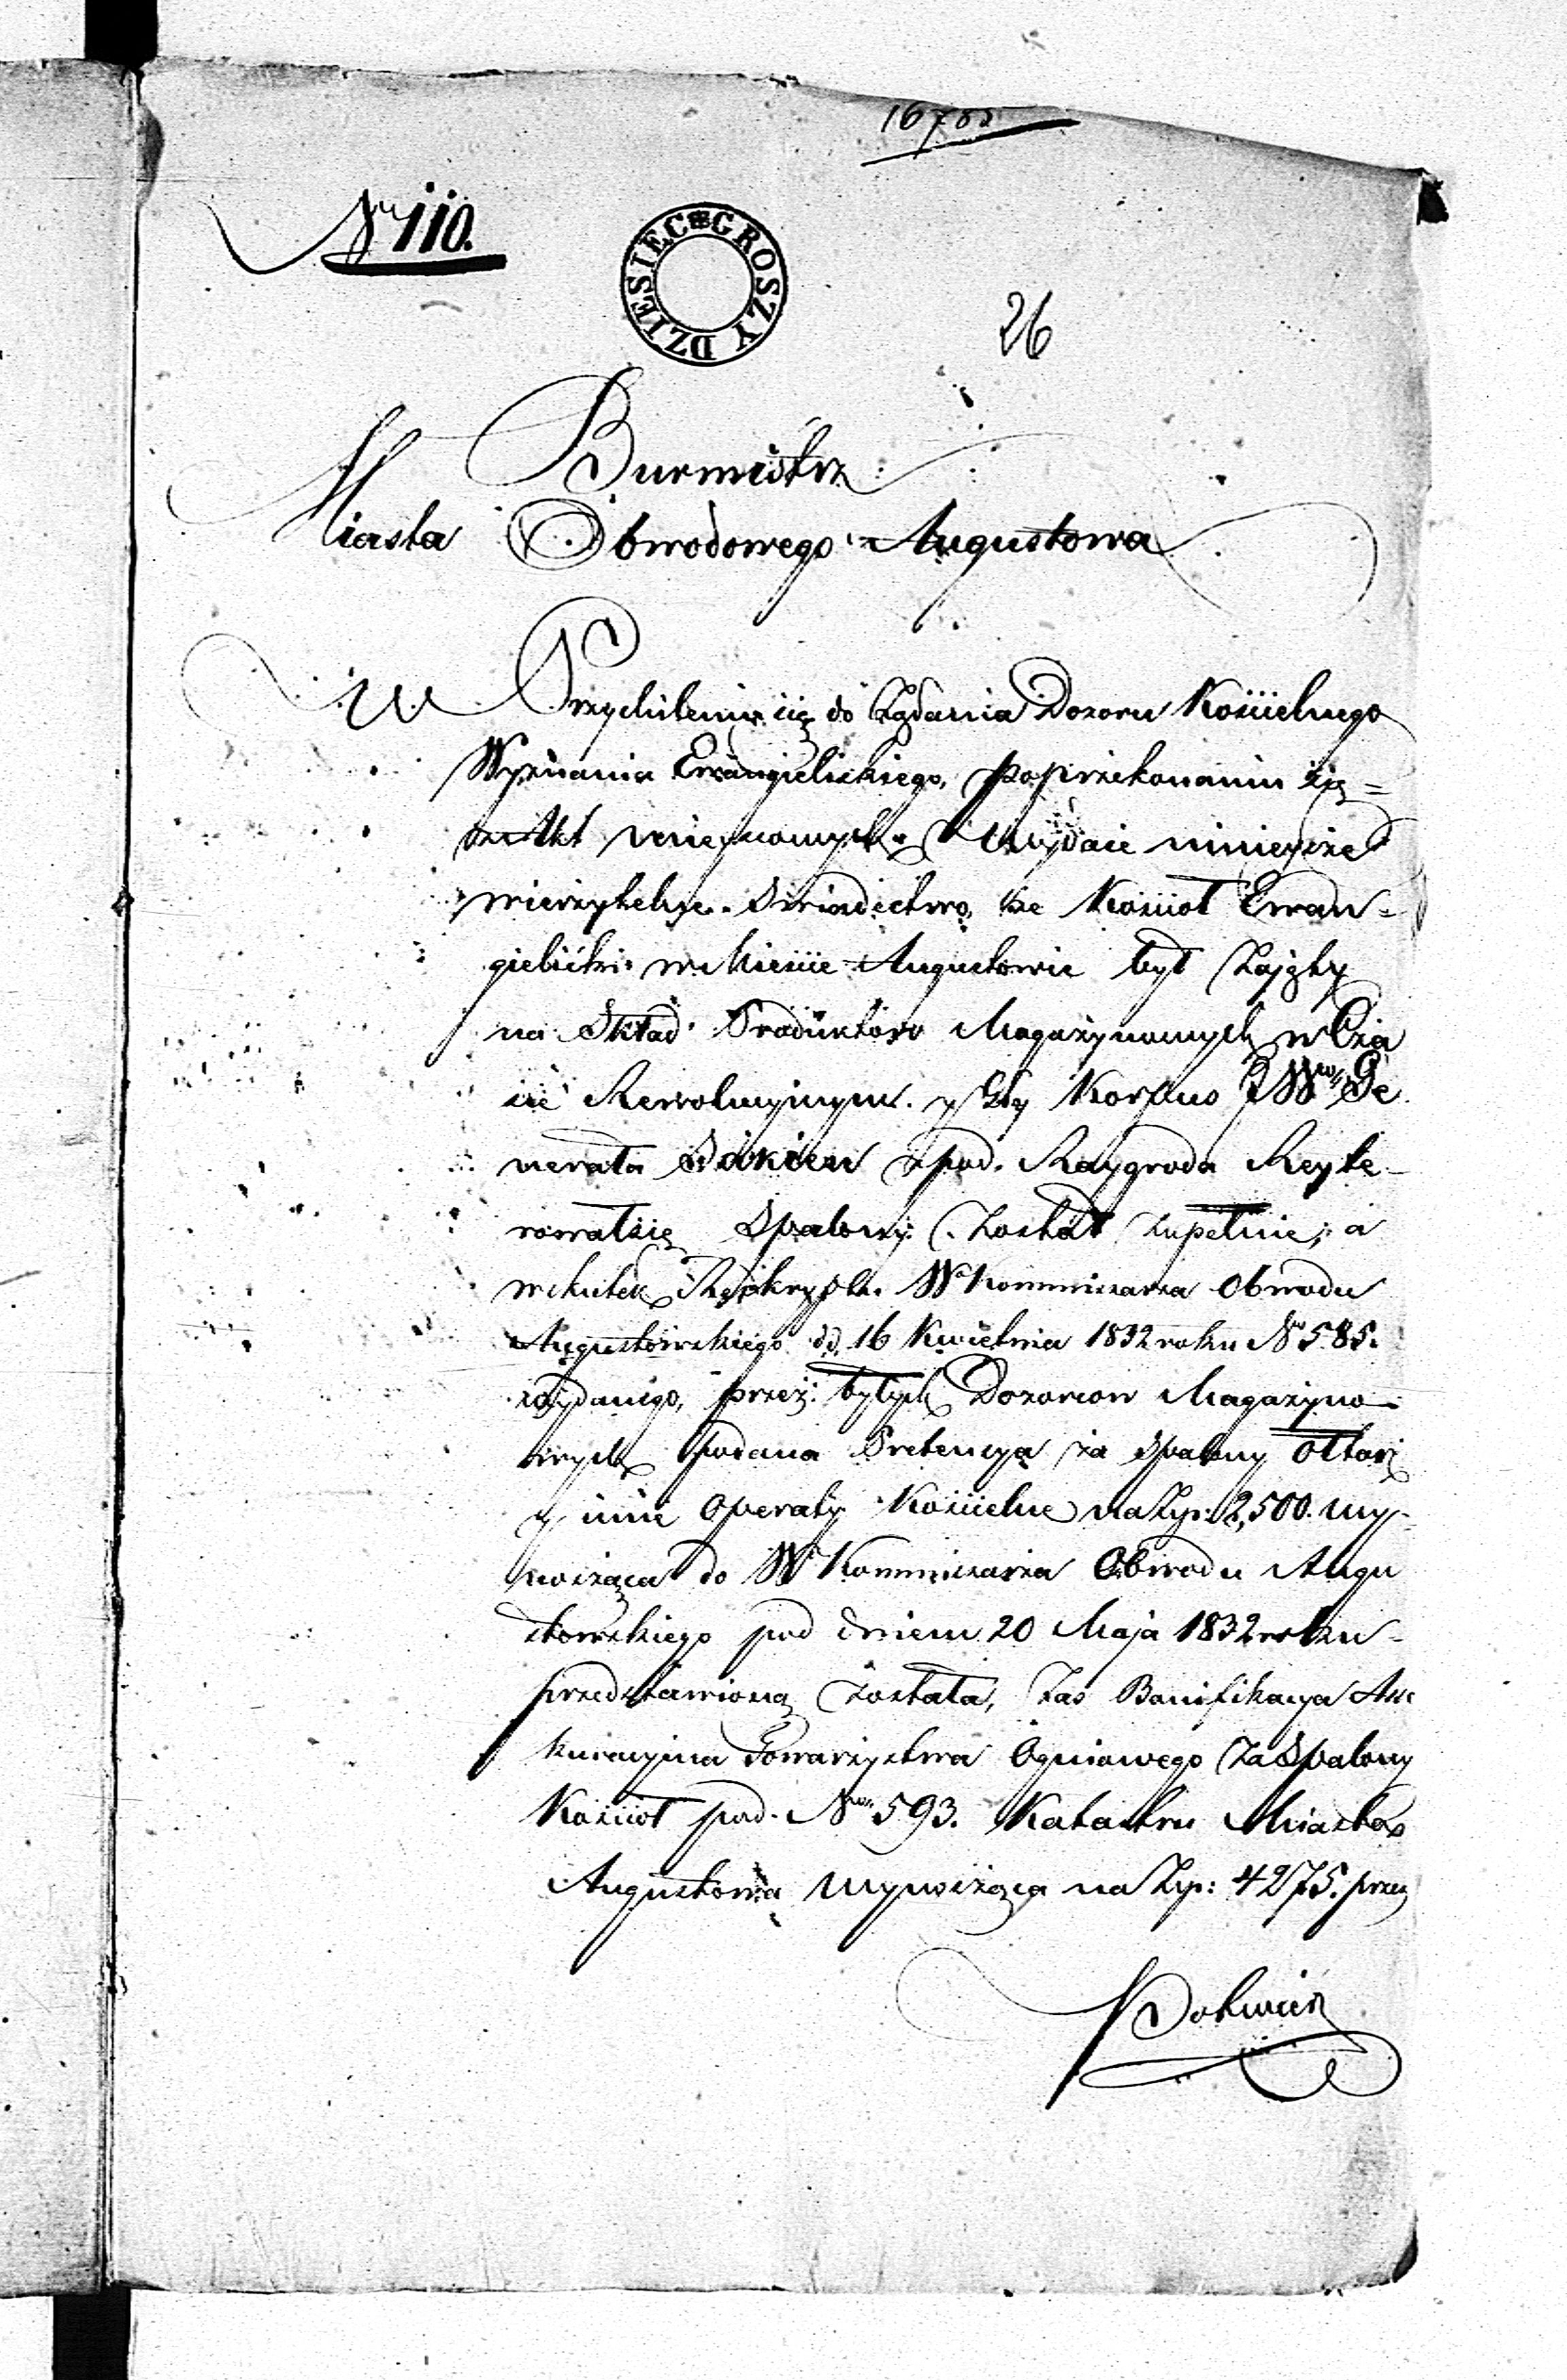 1678
Nr 110.
DZIESIĘC GROSZY
26
Burmistrz
Miasta Obwodowego Augustowa
W Przychileniu się do Żądania Dozoru Kościelnego
Wyznania Ewangielickiego, po przekonaniu się =
z Akt Wydaie ninieysze
wierzytelne Swiadectwo, że Kościoł Ewan=
gielicki w Mieście Augustowie był Zajęty
na Skład Produktow Magazynowych w Cza
sie Rewolucyinym. y gdy Korpus JWo Ge
nerała z pod Raygroda Reyte-
rował się Spalony Został zupełnie; a
w skutek Reskryptu W Kommissarza Obwodu
Augustowskiego dd. 16 Kwietnia 1832 roku Nr 585.
wydanego, przez byłych Dozorcow Magazyno-
wych podana Pretencya za Spalony Ołtarz
y inne Operaty Kościelne na Złp: 2,500. wy-
nosząca do W Kommissarza Obwodu Augu
stowskiego pod dniem 20 Maja 1832 roku -
przedstawioną Została, Zas Bonifikacya Asse
kuracyina Towarzystwa Ogniowego Za Spalony
Kościoł pod Nrm 593. Katastru Miasta
Augustowa wynosząca na Złp: 4275. przez